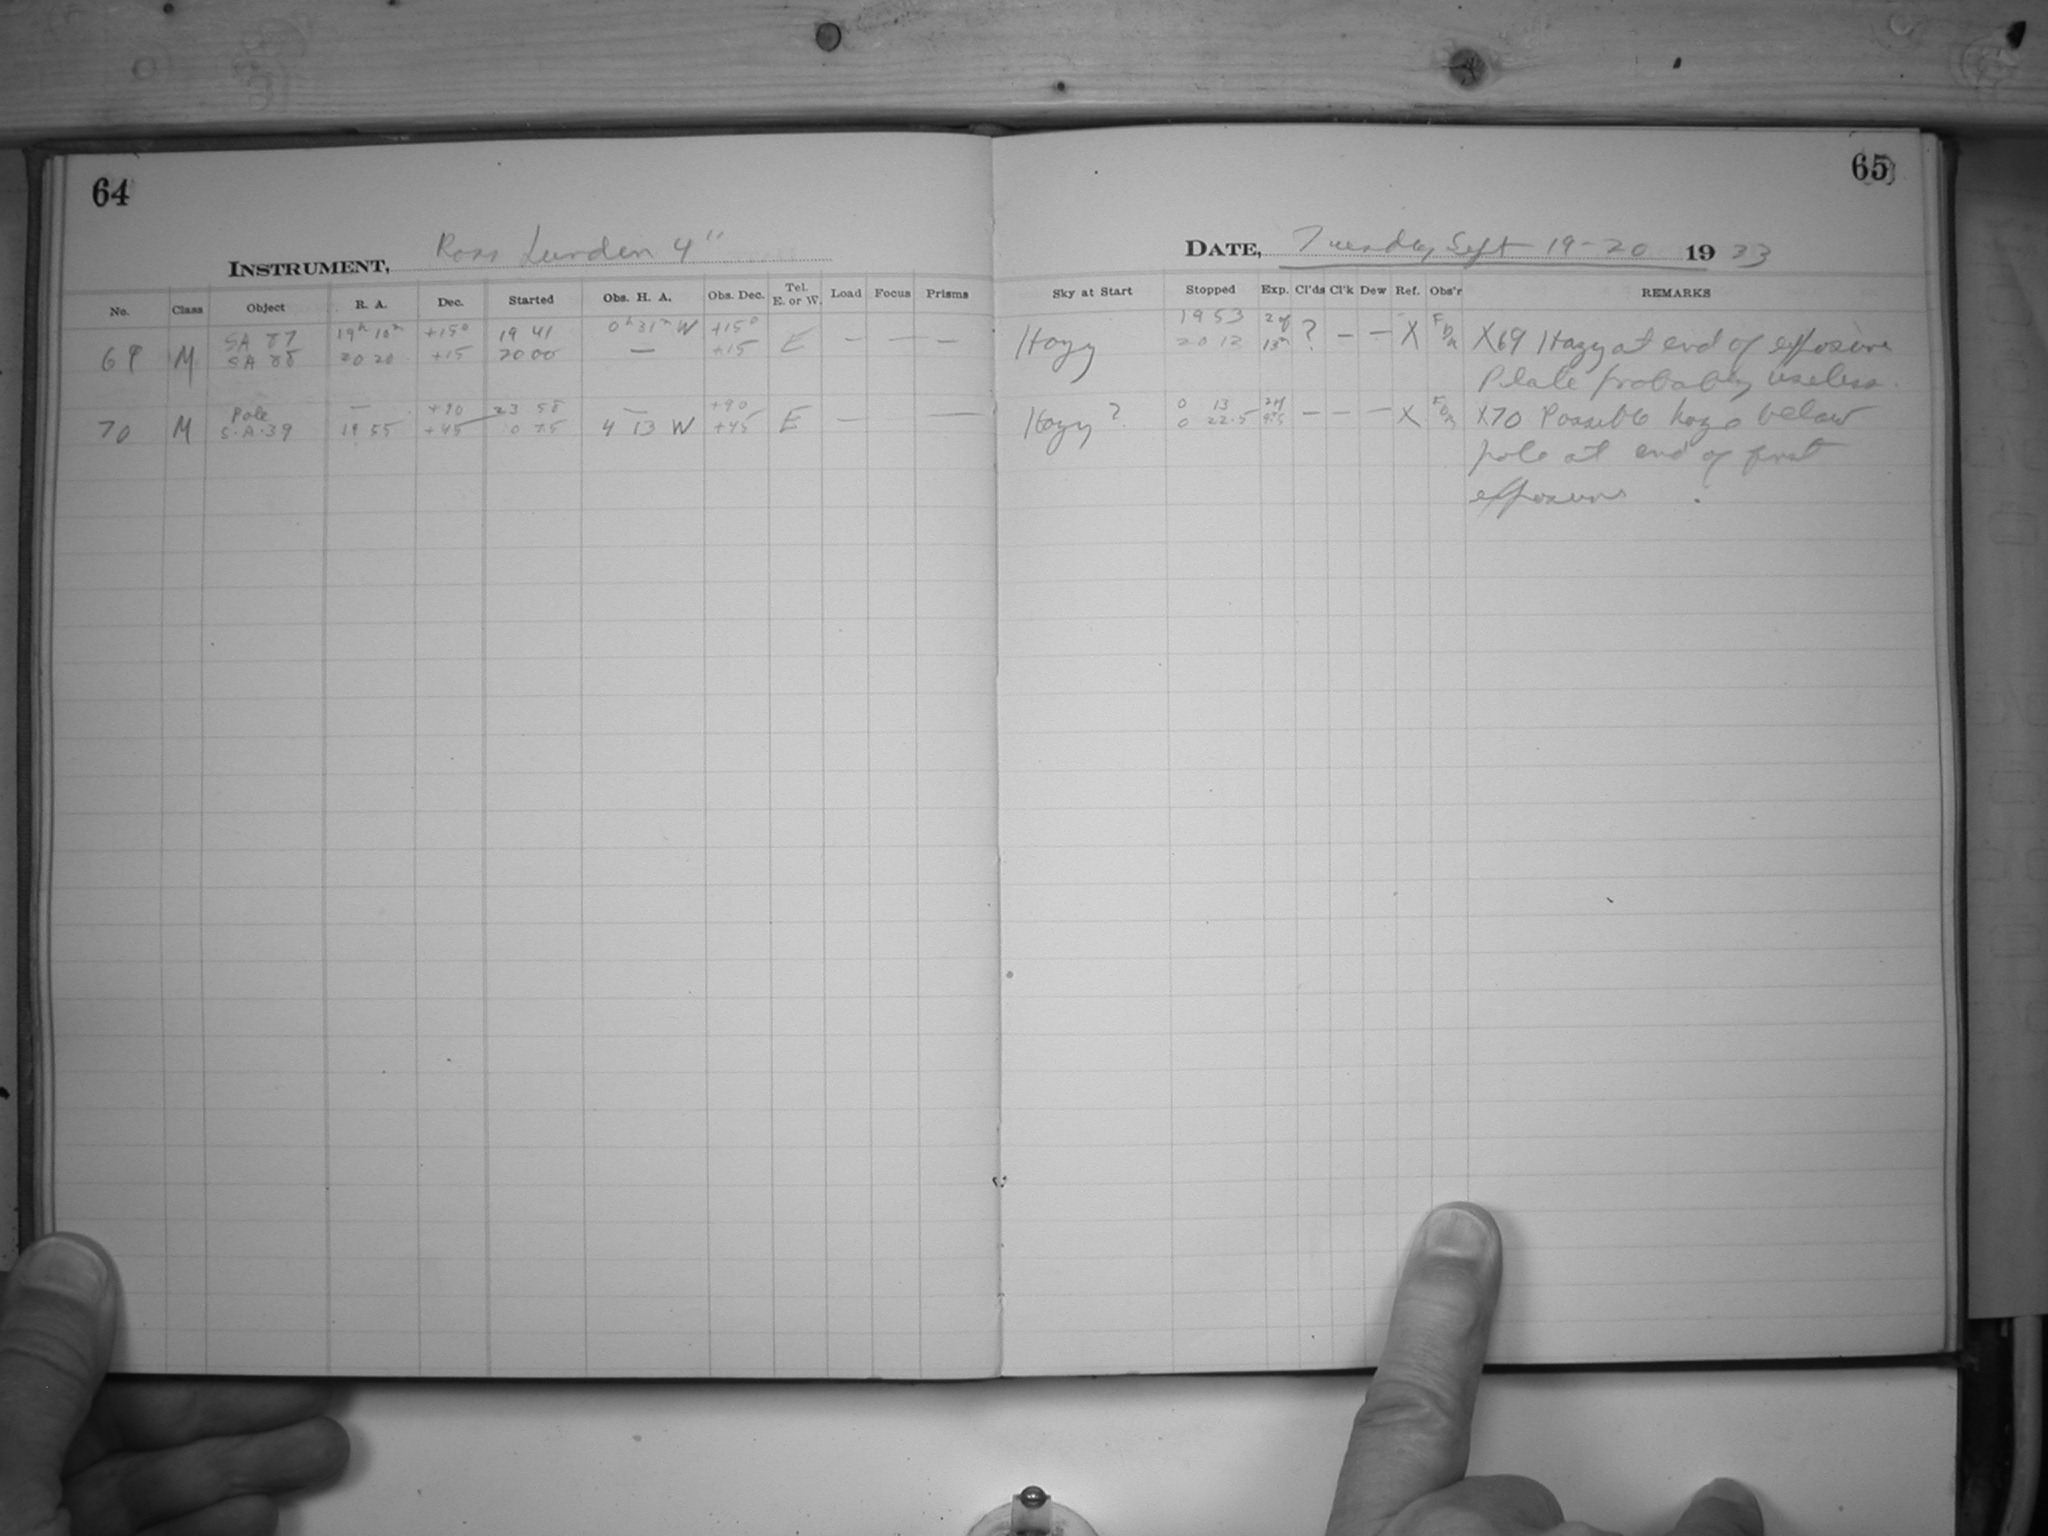 64
65
INSTRUMENT, Ross Lunden 4"
DATE, Tuesday Sept 19-20 1933
No. Class Object R. A. Dec. Started Obs. H. A. Obs. Dec. Tel. E. or W. Load Focus Prisms Sky at Start Stopped Exp. Cl'ds Cl'k Dew Ref. Obs'r REMARKS
SA 87 19h 10m +15° 19 41 0h 31m W +15° 1953 2 of
69 M SA 88 20 20 +15 20 00 — +15 E — — — Hazy 20 12 12m ? — — X X69 Hazy at end of exposure
Plate probably useless.
Pole — +90 23 58 — +90 0 13 2 of
70 M S.A.39 19 55 +45 4 13 W +45 E — — Hazy? 0 22.5 — — — X X70 Possible haze below
pole at end of first
exposure.